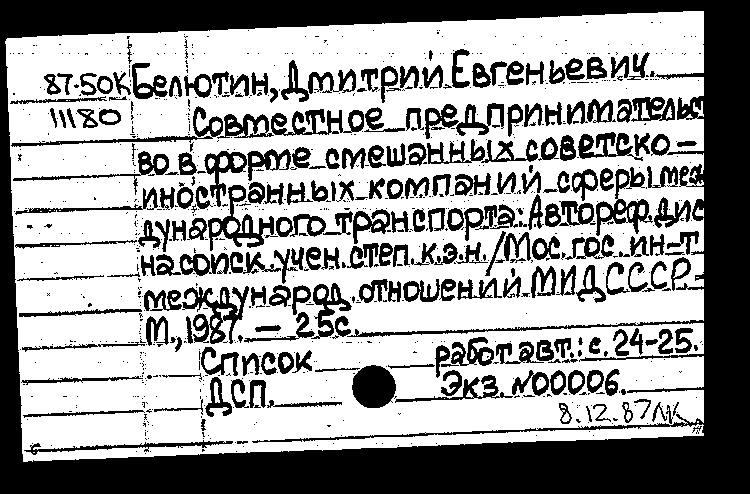 87-50К Белютин, Дмитрий Евгеньевич.
11180 Совместное предпринимательст
во в форме смешанных советско –
иностранных компаний сферы меж
дународного транспорта: Автореф. дис
на соиск. учен. степ. к.э.н. / Мос. гос. ин-т
международ. отношений МИД СССР. -
М., 1987. — 25с.
Список работ авт.: с. 24-25.
ДСП. Экз. №00006.
8.12.87